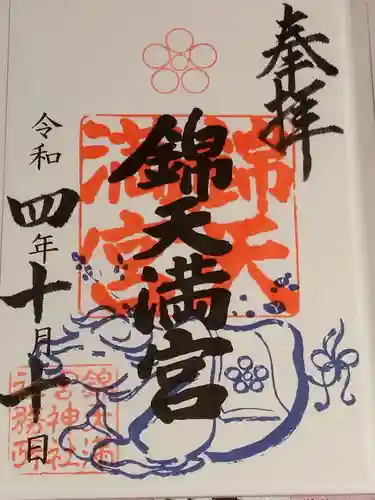 奉拝
錦天
満宮
錦天満宮
令和四年十月十日
錦天満
宮神社
社務所